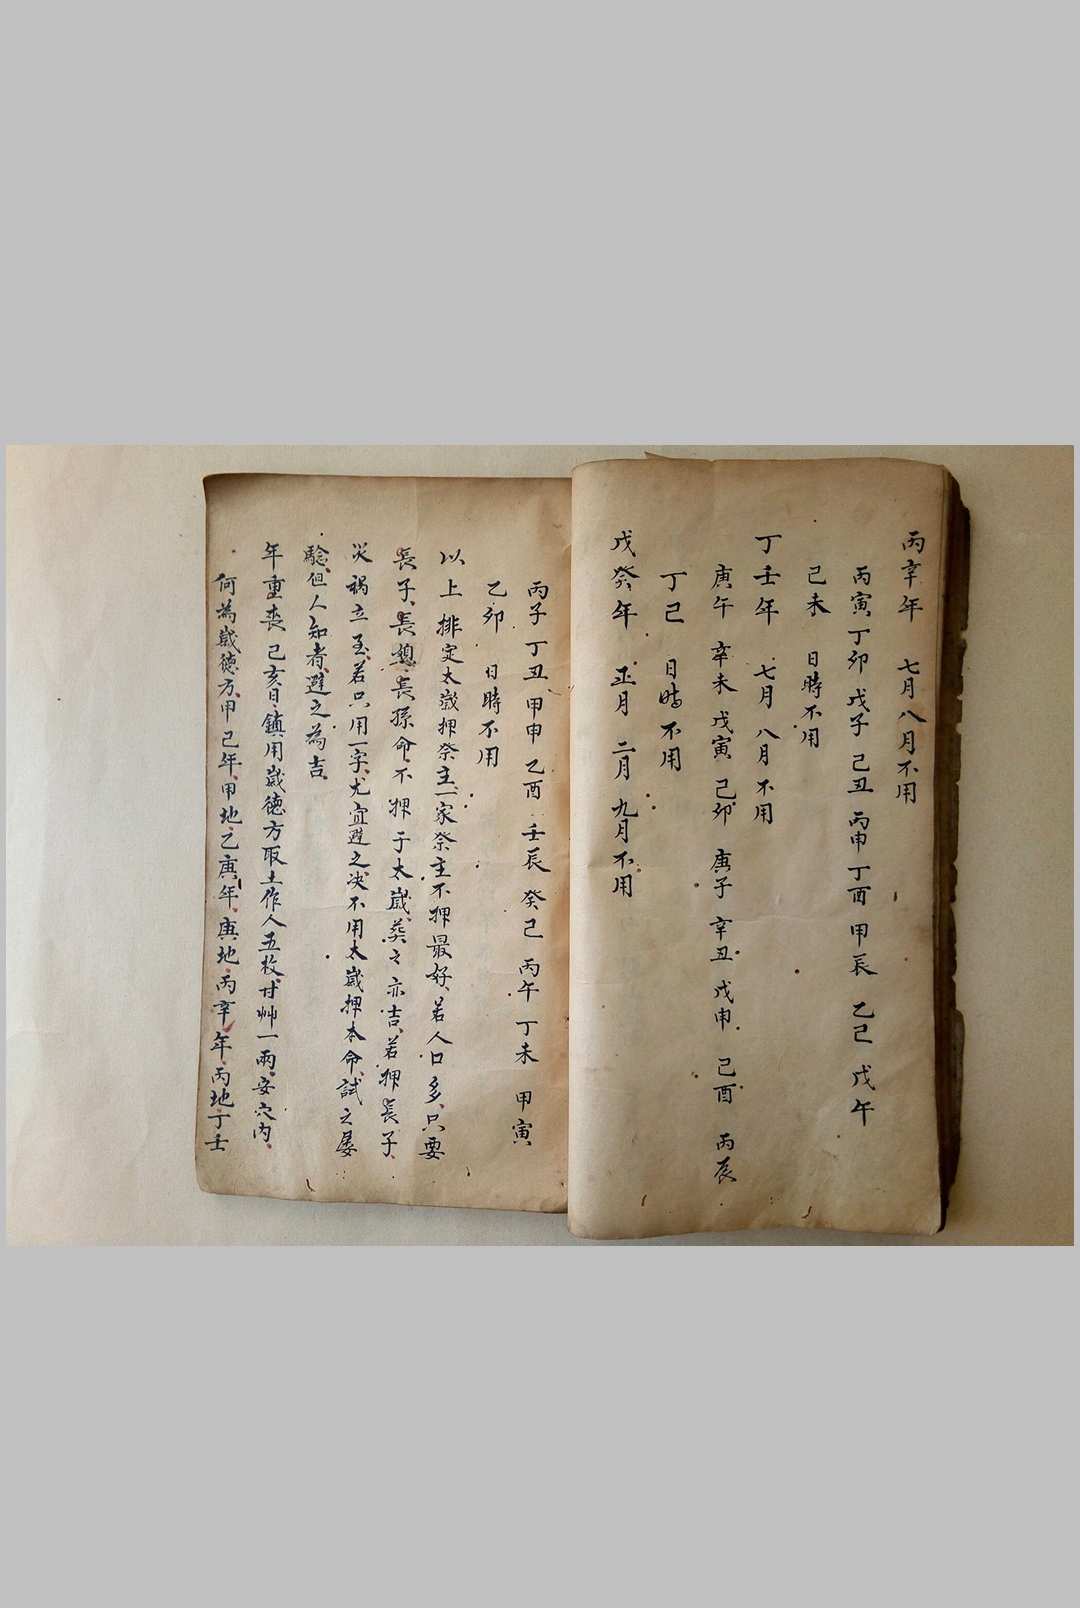 丙辛年 七月八月不用
丙寅 丁卯 戊子 己丑 丙申 丁酉 甲辰 乙巳 戊午
己未 日時不用
丁壬年 七月 八月不用
庚午 辛未 戊寅 己卯 庚子 辛丑 戊申 己酉 丙辰
丁巳 日時不用
戊癸年 正月 二月 九月不用
丙子 丁丑 甲申 乙酉 壬辰 癸巳 丙午 丁未 甲寅
乙卯 日時不用
以上排定太歲押祭主一家祭主不押最好若人口多只要
長子長媳長孫命不押于太歲葬之亦吉若押長子
災禍立至若只用一字尤宜避之決不用太歲押本命試之屡
驗但人知者避之為吉
年重喪己亥日鎮用歲德方取土作人五枚甘艸一兩安穴內
何為歲德方甲己年甲地乙庚年庚地丙辛年丙地丁壬